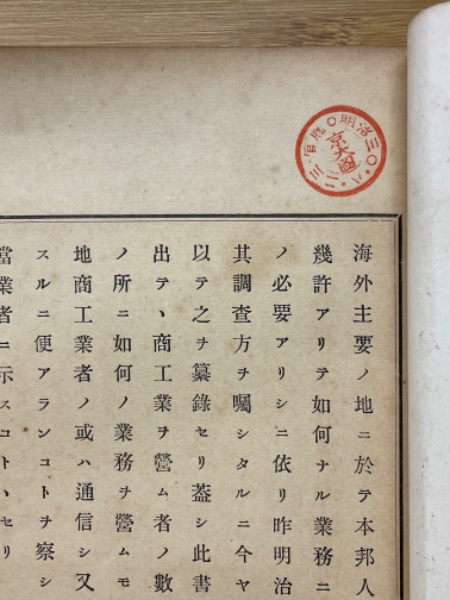 海外主要ノ地ニ於テ本邦人
幾許アリテ如何ナル業務ニ
ノ必要アリシニ依リ昨明治
其調査方ヲ囑シタルニ今ヤ
以テ之ヲ纂錄セリ蓋シ此書
出テ、商工業ヲ營ム者ノ數
ノ所ニ如何ノ業務ヲ營ムモ
地商工業者ノ或ハ通信シ又
スルニ便アランコトヲ察シ
當業者ニ示スコトヽセリ
明治三〇・八・二二・官廳
京大圖